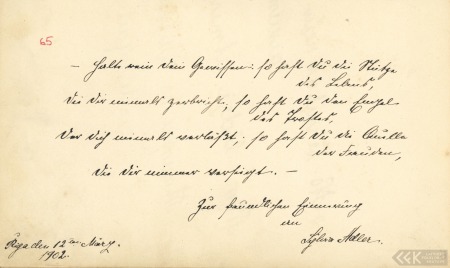 65
— Halte rein dein Gewissen: so hast du die Stütze
des Lebens,
die dir niemals zerbricht; so hast du den Engel
des Trostes,
Der dich niemals verläßt; so hast du die Quelle
der Freuden,
die dir nimmer versiegt. —
Zur freundlichen Erinnerung
an
Sylvia Adler.
Riga den 12ten März.
1902.